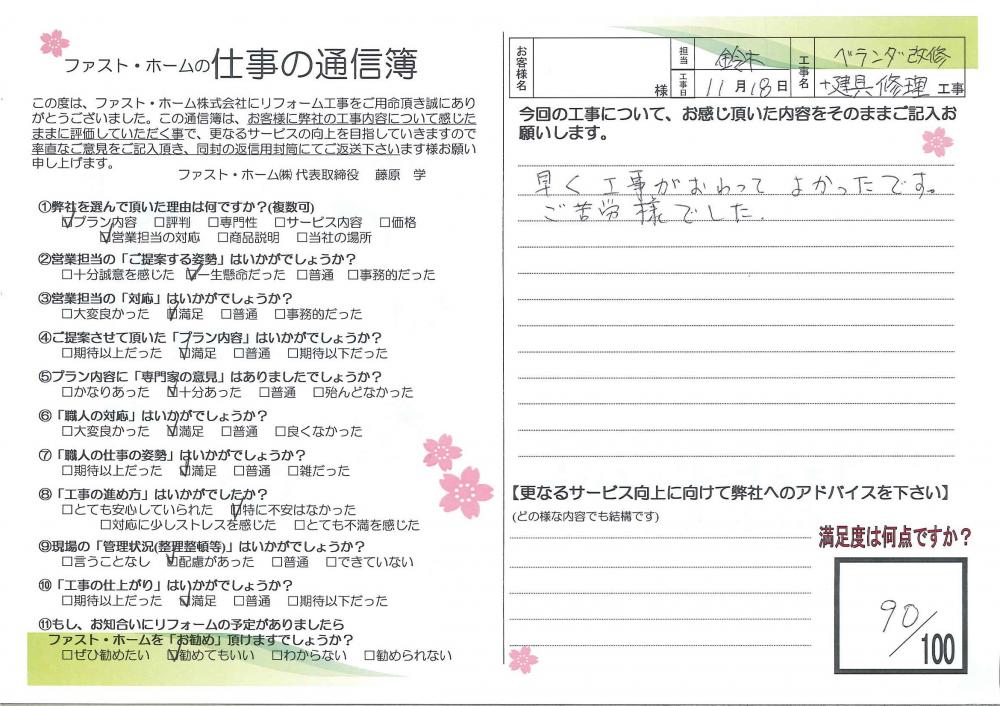 ファスト・ホームの仕事の通信簿
この度は、ファスト・ホーム株式会社にリフォーム工事をご用命頂き誠にあり
がとうございました。この通信簿は、お客様に弊社の工事内容について感じた
ままに評価していただく事で、更なるサービスの向上を目指していきますので
率直なご意見をご記入頂き、同封の返信用封筒にてご返送下さいます様お願い
申し上げます。
ファスト・ホーム㈱ 代表取締役 藤原 学
①弊社を選んで頂いた理由は何ですか?(複数可)
☑プラン内容 □評判 □専門性 □サービス内容 □価格
☑営業担当の対応 □商品説明 □当社の場所
②営業担当の「ご提案する姿勢」はいかがでしょうか?
□十分誠意を感じた ☑一生懸命だった □普通 □事務的だった
③営業担当の「対応」はいかがでしょうか?
□大変良かった ☑満足 □普通 □事務的だった
④ご提案させて頂いた「プラン内容」はいかがでしょうか?
□期待以上だった ☑満足 □普通 □期待以下だった
⑤プラン内容に「専門家の意見」はありましたでしょうか?
□かなりあった ☑十分あった □普通 □殆んどなかった
⑥「職人の対応」はいかがでしょうか?
□大変良かった ☑満足 □普通 □良くなかった
⑦「職人の仕事の姿勢」はいかがでしょうか?
□期待以上だった ☑満足 □普通 □雑だった
⑧「工事の進め方」はいかがでしたか?
□とても安心していられた ☑特に不安はなかった
□対応に少しストレスを感じた □とても不満を感じた
⑨現場の「管理状況(整理整頓等)」はいかがでしょうか?
□言うことなし ☑配慮があった □普通 □できていない
⑩「工事の仕上がり」はいかがでしょうか?
□期待以上だった ☑満足 □普通 □期待以下だった
⑪もし、お知合いにリフォームの予定がありましたら
ファスト・ホームを「お勧め」頂けますでしょうか?
□ぜひ勧めたい ☑勧めてもいい □わからない □勧められない
お客様名 様 担当 鈴木 工事日 11月18日 工事名 ベランダ改修
+建具修理 工事
今回の工事について、お感じ頂いた内容をそのままご記入お
願いします。
早く工事がおわって よかったです。
ご苦労様でした.
【更なるサービス向上に向けて弊社へのアドバイスを下さい】
(どの様な内容でも結構です)
満足度は何点ですか?
90/100